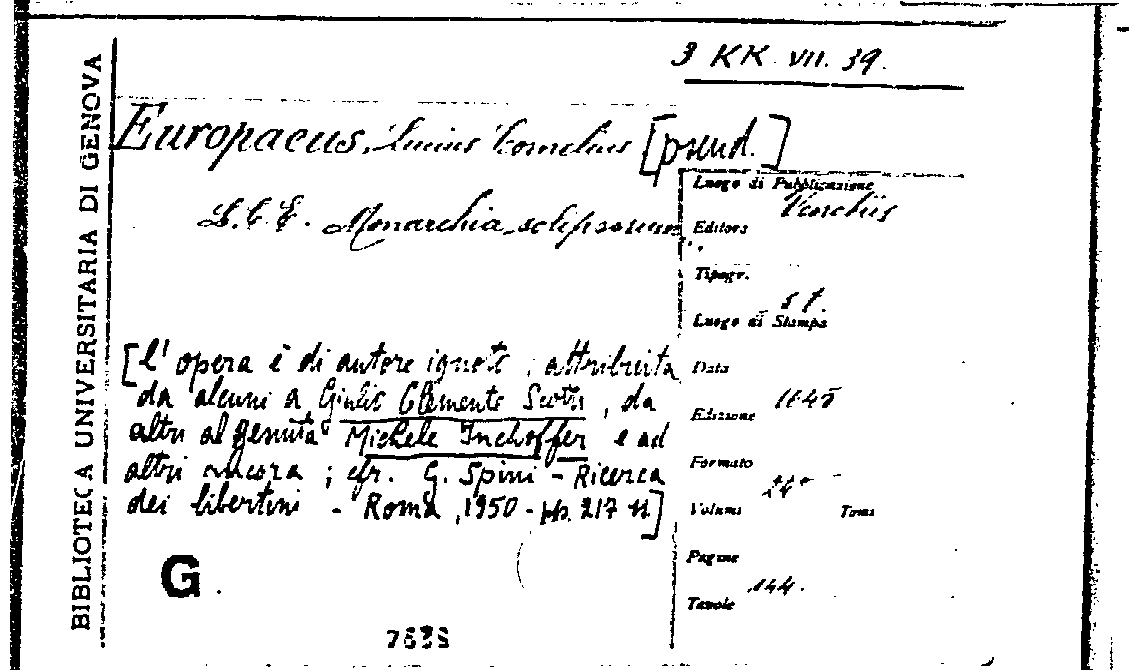 BIBLIOTECA UNIVERSITARIA DI GENOVA
3 KK. VII. 39.
Europaeus, Lucius Cornelius [pseud.]
L. C. E. Monarchia solipsorum
Luogo di Pubblicazione
Venetiis
Editore
Tipogr.
s. t.
Luogo di Stampa
Data
1645
Edizione
Formato
24°
Volumi Tomi
Pagine
144.
Tavole
[l'opera è di autore ignoto; attribuita
da alcuni a Giulio Clemente Scotti, da
altri al gesuita Michele Inchoffer e ad
altri ancora; cfr. G. Spini - Ricerca
dei libertini - Roma, 1950 - pp. 217 sg]
G.